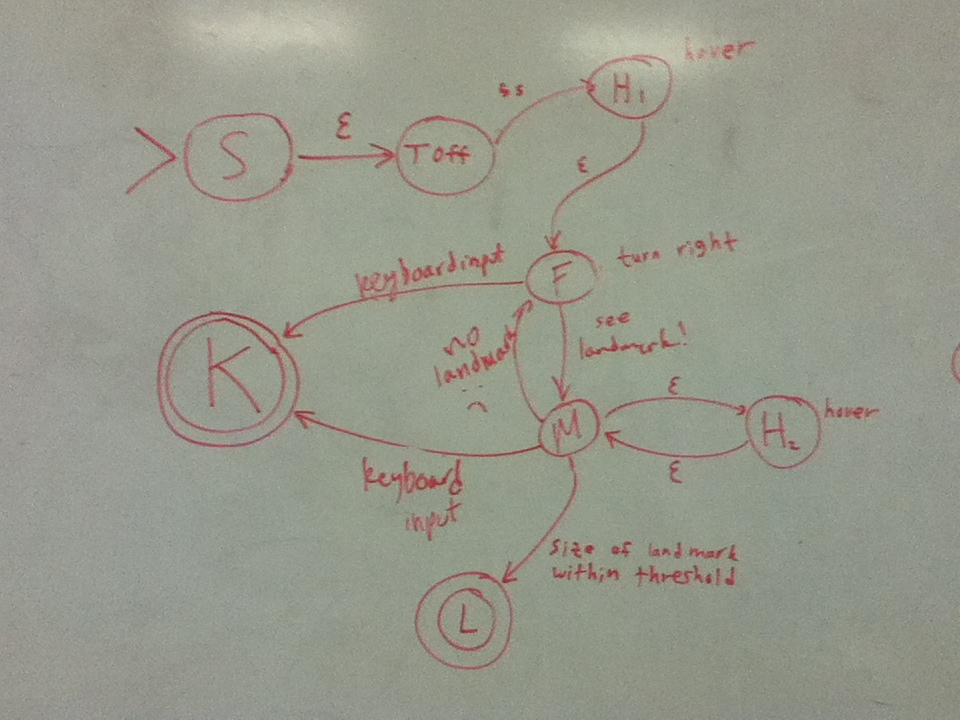 hover
H₁
ss
ε
S
T off
ε
turn right
keyboard input
F
see
landmark!
no
landmark
K
ε
hover
M
H₂
ε
keyboard
input
size of landmark
within threshold
L